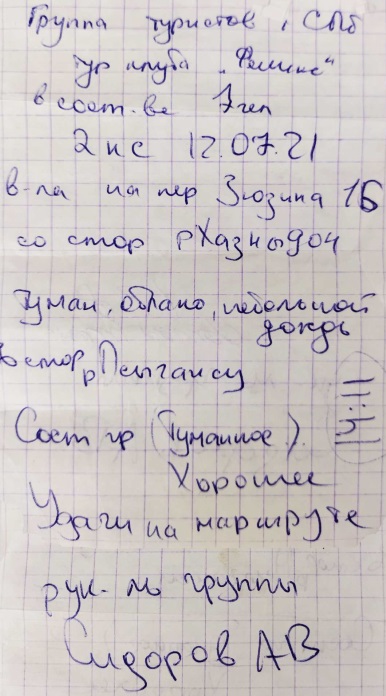 Группа туристов, СПб
турклуба „Феникс“
в сост-ве 7 чел
2 кс 12.07.21
в-ла на пер Зюзина 1Б
со стор р Хазныдон
Туман, облако, небольшой
дождь
В стор р Псыгансу
Сост гр (Туманное).
Хорошее
11:41
Удачи на маршруте
рук-ль группы
Сидоров АВ